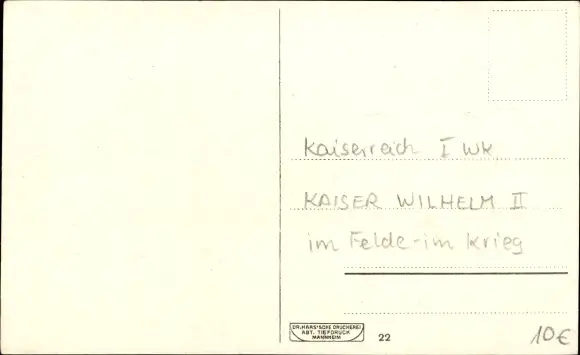 Kaiserreich I WK
KAISER WILHELM II
im Felde - im Krieg
DR. HAAS'SCHE DRUCKEREI
ABT. TIEFDRUCK
MANNHEIM
22
10€